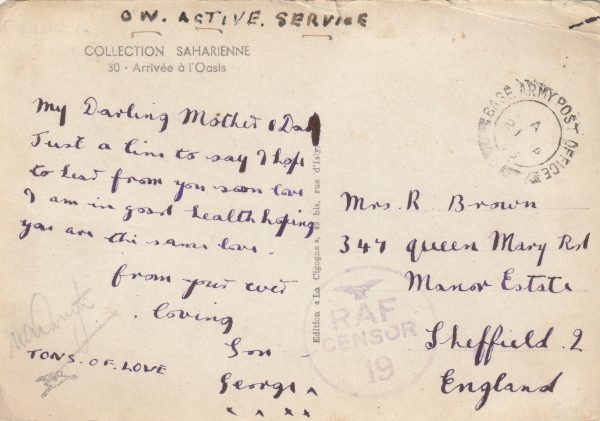 ON. ACTIVE. SERVICE
COLLECTION SAHARIENNE
30 - Arrivée à l'Oasis
My Darling Mother & Dad
Just a line to say I hope
to hear from you soon love
I am in good health hoping
you are the same love.
from your ever
loving
Son
George
x x x x
TONS. OF. LOVE
Edition « La Cigogne », bis, rue d'Isly
BASE ARMY POST OFFICE
RAF
CENSOR
19
Mrs. R. Brown
347 queen Mary Rd
Manor Estate
Sheffield. 2
England